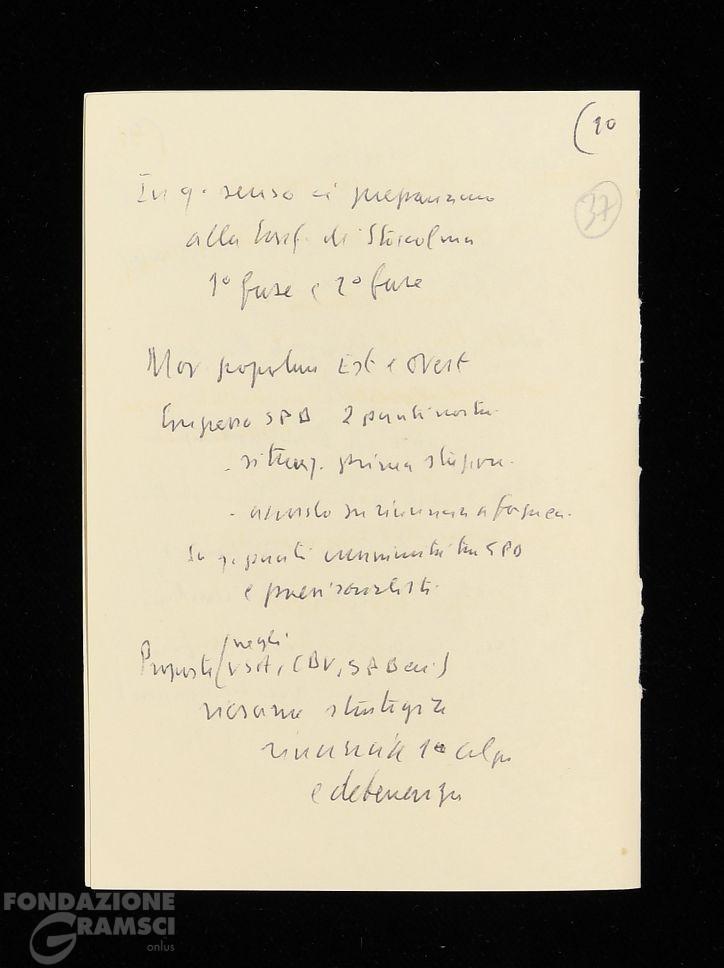 (10
37
In q. senso ci prepariamo
alla Conf. di Stoccolma
1° fase e 2° fase
Mov popolari Est e Ovest
Congresso SPD 2 punti nostri
- situaz. prima
- accordo su rinuncia a forza
Su q. punti tra SPD
e paesi socialisti
negli
Proposte (USA, CDU, SPD ecc)
riesame strategia
rinuncia 1° colpo
e deterrenza
FONDAZIONE
GRAMSCI
onlus